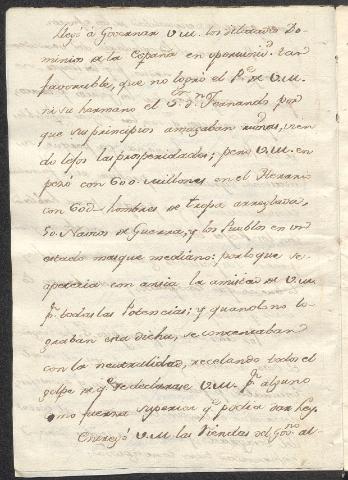 Llegó á Governar V.M. los dilatados Do-
minios de la España en oportunid.d tan
favorable, que no logró el P.e de V.M.
ni su hermano el S.or d.n Fernando, por
que sus principios amagaban ruinas, vien
do lejos las prosperidades; pero V.M. em
pezó con 600 millones en el Herario
con 60d hombres de tropa arreglada,
50 Navios de Guerra, y los Pueblos en un
estado mas que mediano: por lo que se
apetecia con ansia la amistad de V.M.
p.r todas las Potencias; y quando no lo-
graban esta dicha, se contentaban
con la neutralidad, recelando todos el
golpe de q.e se declarase V.M. p.r alguno
como fuerza superior q.e podia dar Ley.
Entregó V.M. las riendas del Gov.no al-